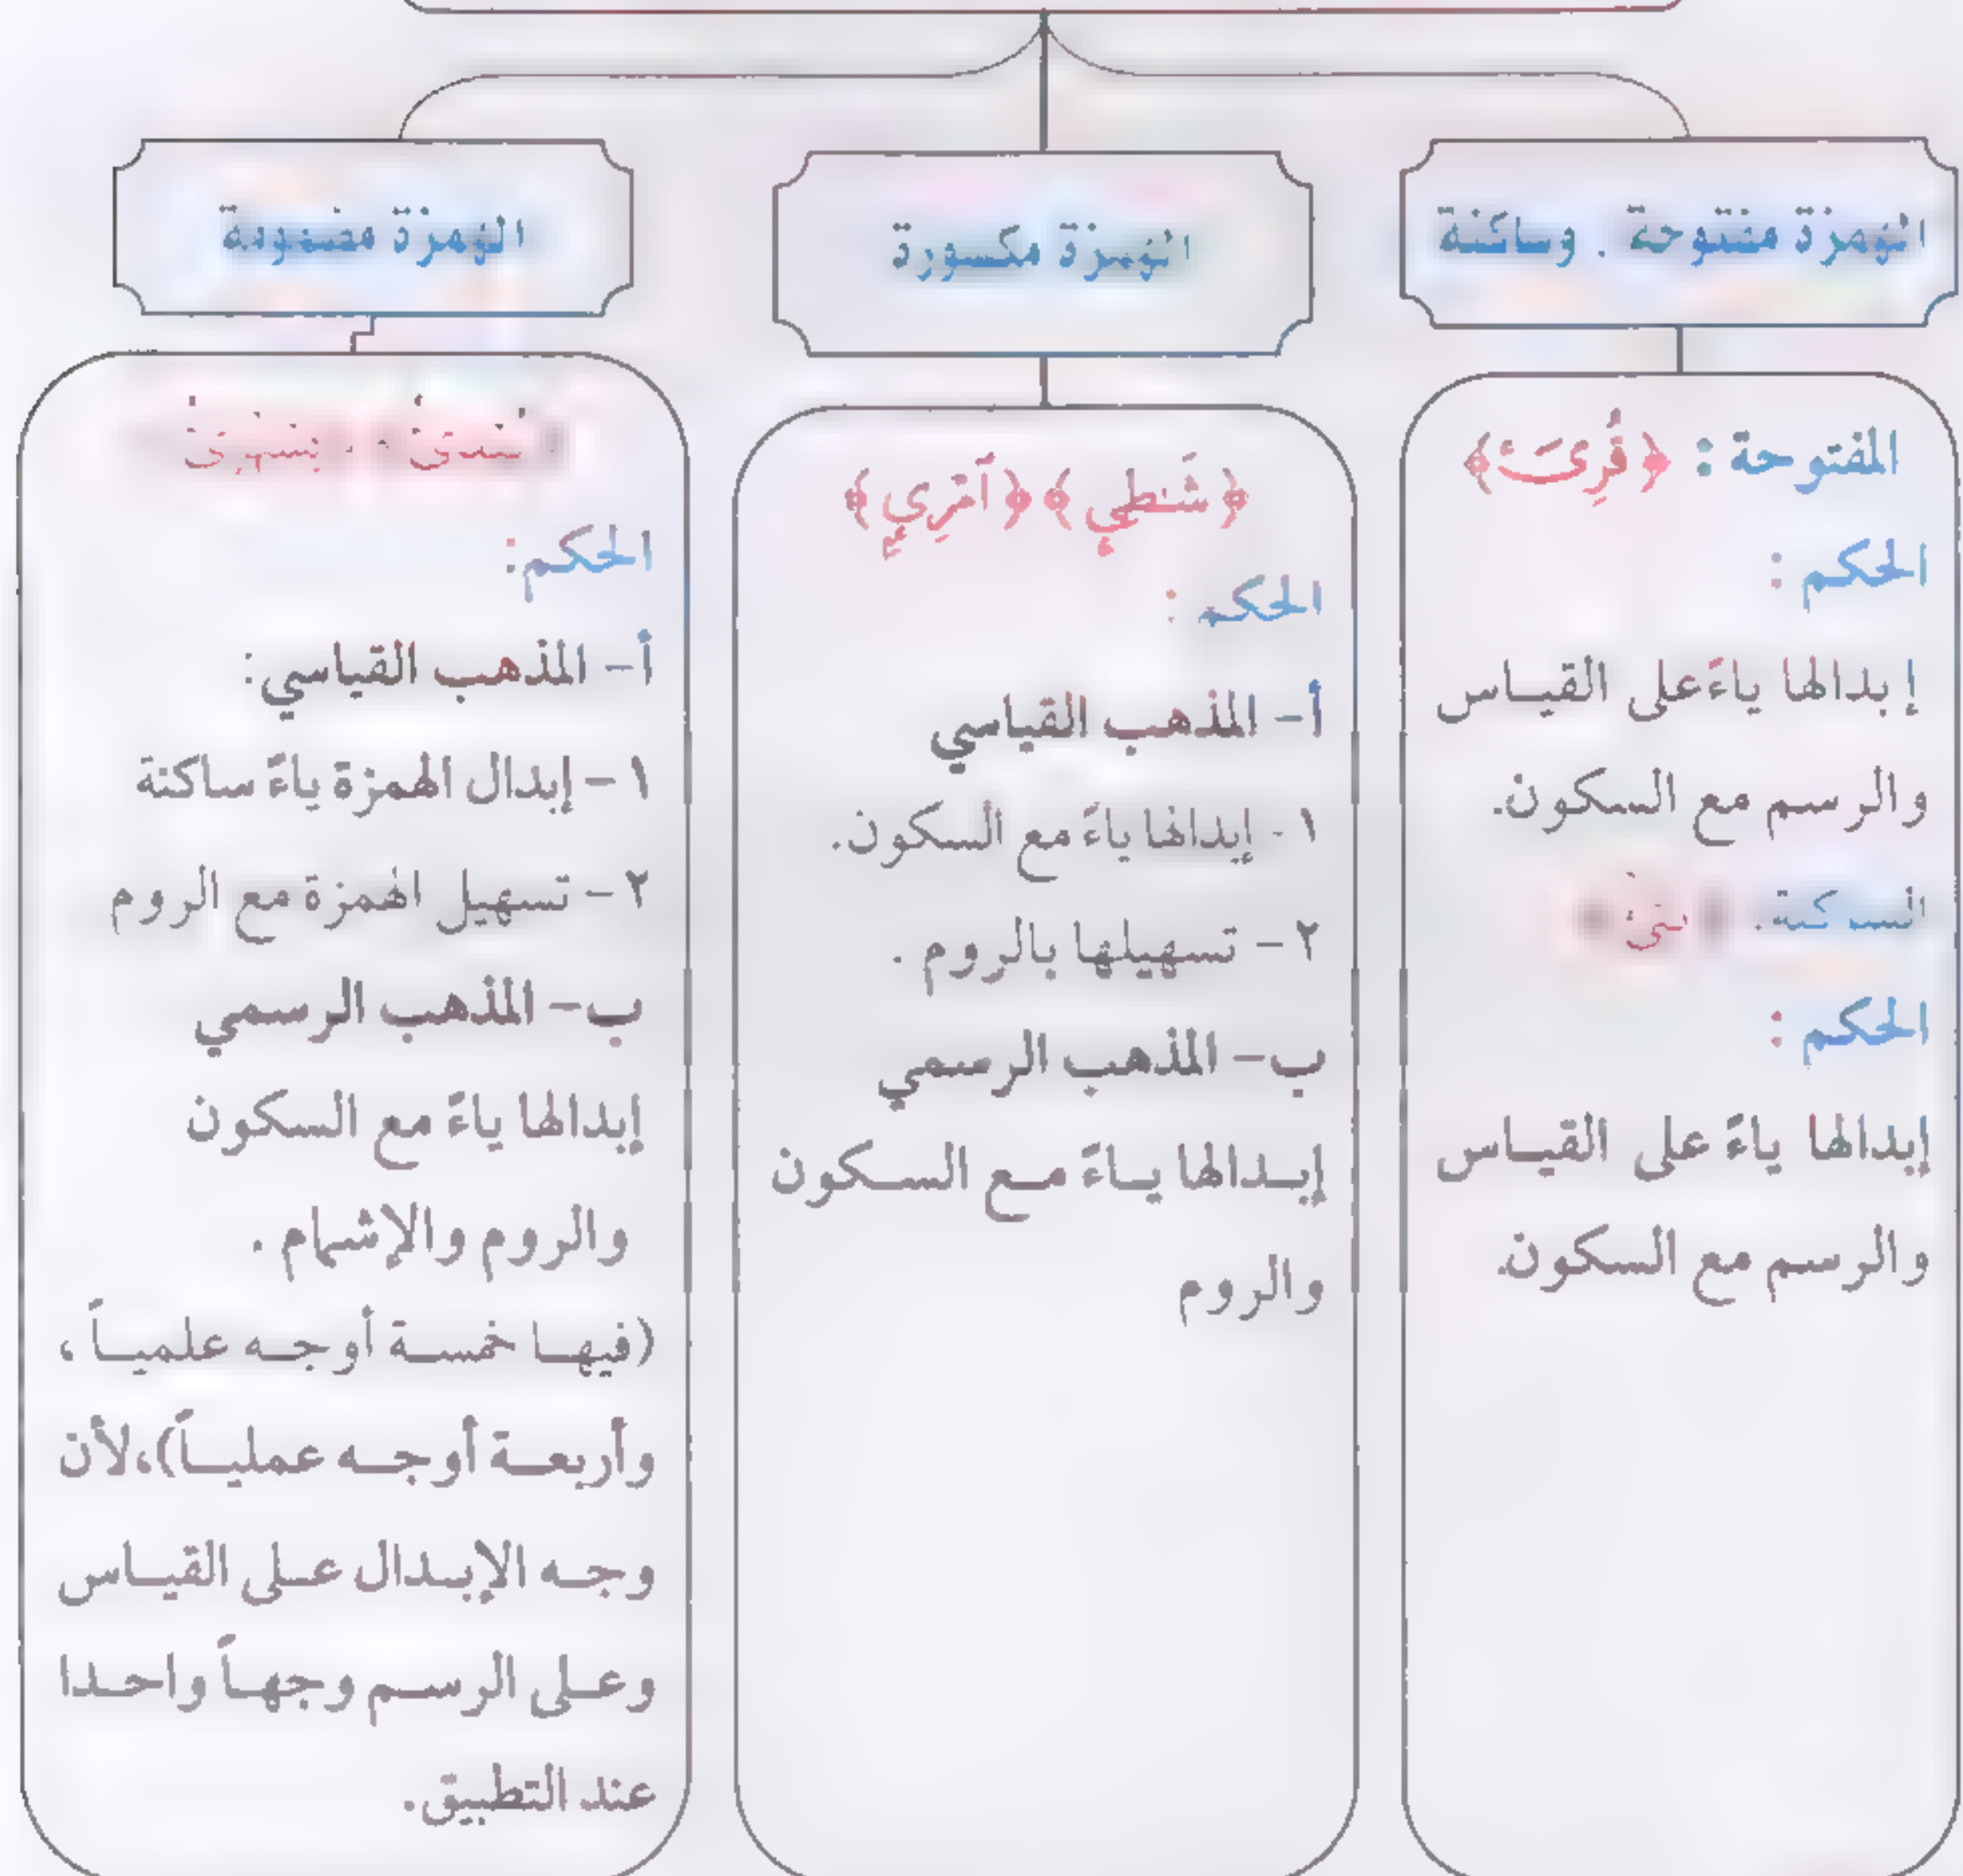 الهمزة مفتوحة . وساكنة
المفتوحة : ﴿قُرِئَ﴾
الحكم :
إبدالها ياءً على القياس
والرسم مع السكون.
الساكنة.
الحكم :
إبدالها ياءً على القياس
والرسم مع السكون.
الهمزة مكسورة
﴿شَٰطِيِٕ﴾ ﴿ٱمْرِيِٕ﴾
الحكم :
أ- المذهب القياسي
١- إبدالها ياءً مع السكون.
٢- تسهيلها بالروم .
ب- المذهب الرسمي
إبدالها ياءً مع السكون
والروم
الهمزة مضمومة
الحكم:
أ- المذهب القياسي:
١- إبدال الهمزة ياءً ساكنة
٢- تسهيل الهمزة مع الروم
ب- المذهب الرسمي
إبدالها ياءً مع السكون
والروم والإشمام .
(فيها خمسة أوجه علمياً ،
وأربعة أوجه عملياً)،لأن
وجه الإبدال على القياس
وعلى الرسم وجهاً واحدا
عند التطبيق.